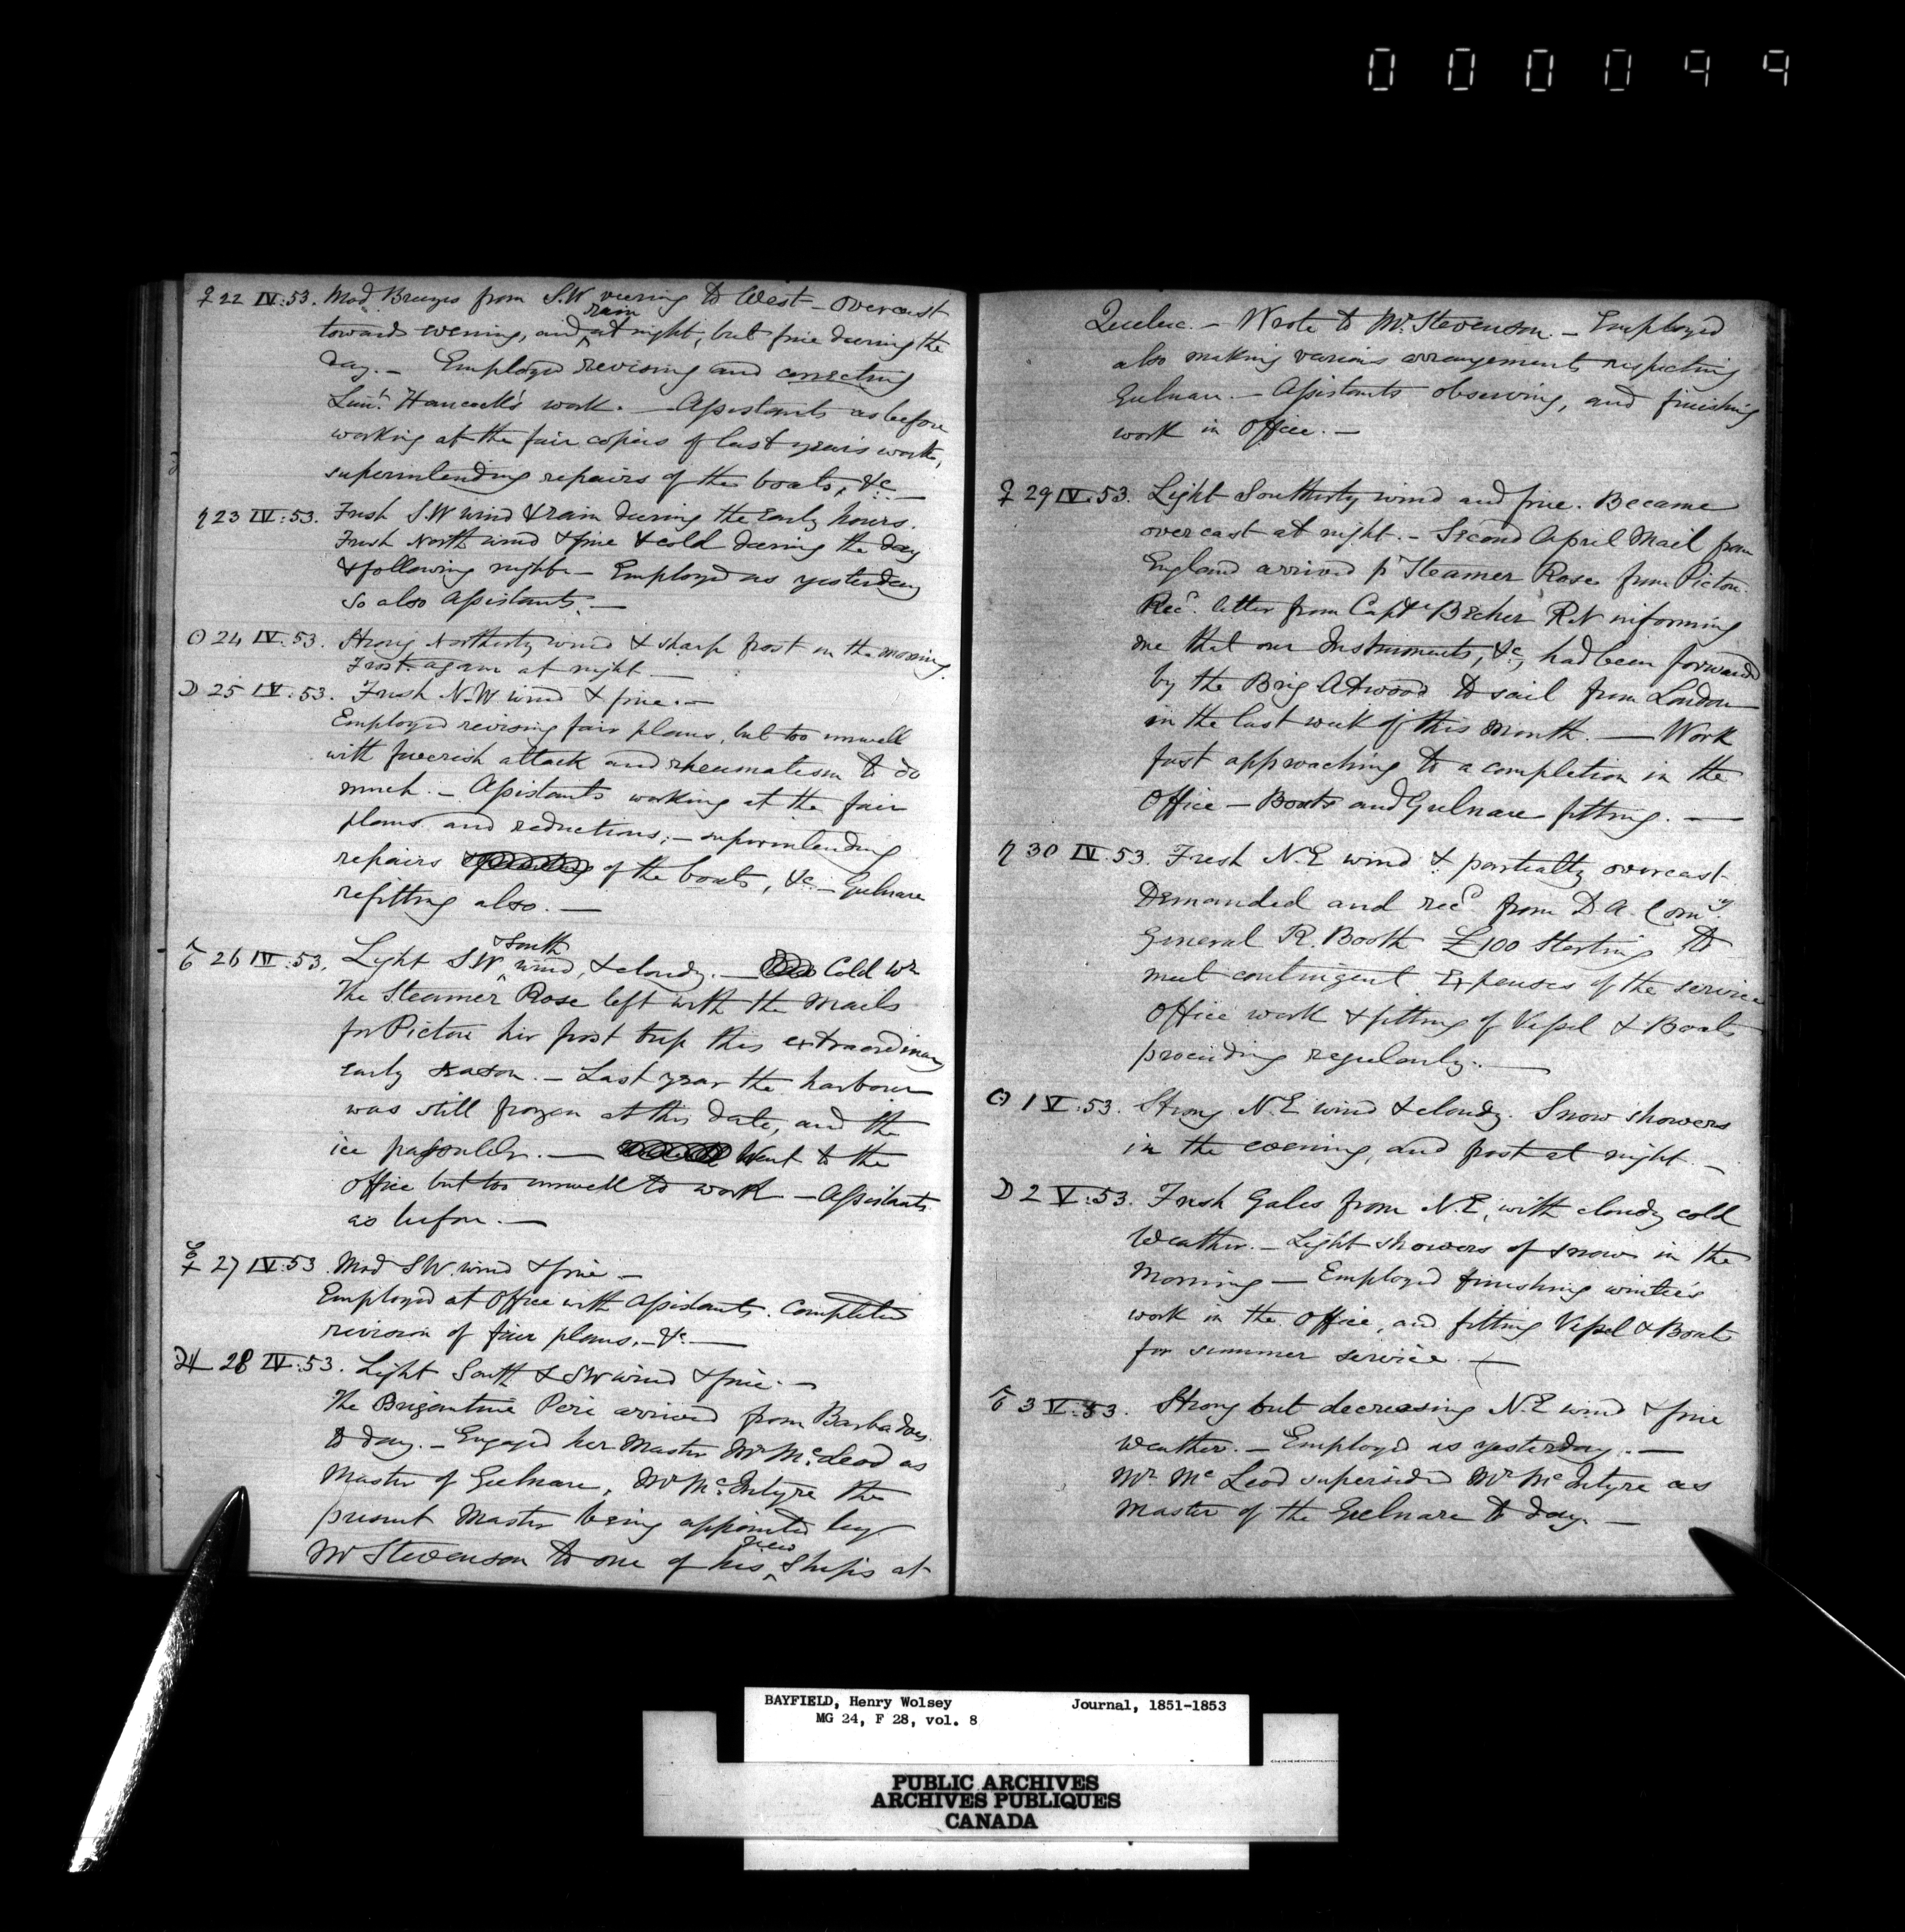 000099
♀ 22 IV:53. Mod Breezes from S.W veering to West – overcast
towards evening, and rain at night, but fine during the
day. – Employed revising and correcting
Lieut. Hancock's work. – Assistants as before
working at the fair copies of last year's work,
superintending repairs of the boats, &c –
♄ 23 IV:53. Fresh S.W wind & rain during the Early hours.
Fresh North wind & fine & cold during the day
& following night – Employed as yesterday
So also Assistants. –
☉ 24 IV:53. Strong Northerly wind & sharp frost in the morning.
Frost again at night –
☽ 25 IV:53. Fresh N.W wind & fine. –
Employed revising fair plans, but too unwell
with feverish attack and rheumatism to do
much. – Assistants working at the fair
plans and reductions; – superintending
repairs of the boats, &c. – Gulnare
refitting also. –
♂ 26 IV:53. Light S.W & South wind, & cloudy. – Cold Wr
The Steamer Rose left with the Mails
for Pictou her first trip this extraordinary
early season. – Last year the harbour
was still frozen at this date, and the
ice passable. – Went to the
Office but too unwell to work – Assistants
as before. –
☿ 27 IV:53 Mod SW. wind & fine –
Employed at Office with Assistants. Completed
revision of fair plans, – &c. –
♃ 28 IV:53. Light South & SW wind & fine. –
The Brigantine Peri arrived from Barbadoes
to day. – Engaged her Master Mr McLeod as
Master of Gulnare, Mr McIntyre the
present Master being appointed by
Mr Stevenson to one of his new Ships at
Quebec. – Wrote to Mr Stevenson. – Employed
also making various arrangements respecting
Gulnare. – Assistants observing, and finishing
work in Office. –
♀ 29 IV:53. Light Southerly wind and fine. Became
overcast at night. – Second April Mail from
England arrived pr Steamer Rose from Pictou.
Recd. letter from Capt Becher R.N informing
me that our Instruments, &c, had been forwarded
by the Brig Atwood to sail from London
in the last week of this month. – Work
fast approaching to a completion in the
Office – Boats and Gulnare fitting. –
♄ 30 IV:53. Fresh N.E wind & partially overcast.
Demanded and recd from D A. Comy.
General R. Booth £100 Sterling to
meet contingent Expenses of the service
Office work & fitting of Vessel & Boats
proceeding regularly. –
☉ 1 V:53. Strong N.E wind & cloudy. Snow showers
in the evening, and frost at night. –
☽ 2 V:53. Fresh Gales from N.E, with cloudy cold
Weather. – Light showers of snow in the
Morning – Employed finishing winter's
work in the Office, and fitting Vessel & Boats
for summer service. –
♂ 3 V:53. Strong but decreasing N.E wind & fine
weather. – Employed as yesterday. –
Mr Mc Leod superseded Mr McIntyre as
Master of the Gulnare to day. –
BAYFIELD, Henry Wolsey Journal, 1851-1853
MG 24, F 28, vol. 8
PUBLIC ARCHIVES
ARCHIVES PUBLIQUES
CANADA